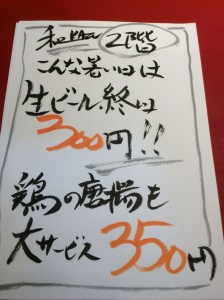 2階
こんな暑い日は
生ビール終日
300円!!
鶏の唐揚も
大サービス 350円